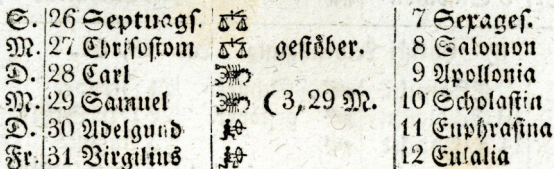 S. 26 Septuags. 7 Sexages.
M. 27 Chrisostom gestöber. 8 Salomon
D. 28 Carl 9 Apollonia
M. 29 Samuel ( 3, 29 M. 10 Scholastin
D. 30 Adelgund 11 Euphrasina
Fr. 31 Virgilius 12 Eulalia